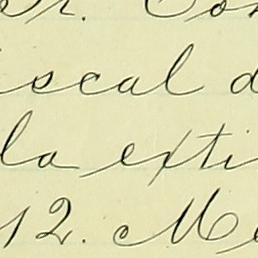 er. Con
iscal d
la exti
12. Me